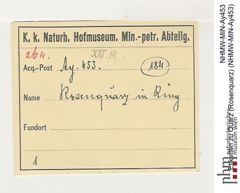 K. k. Naturh. Hofmuseum. Min.-petr. Abteilg.
264. XIII.R.
Acq.-Post Ay. 453. (184)
Name Rosenquarz in Ring
Fundort
1
NHMW-MIN-Ay453
(Rosenquarz) (NHMW-MIN-Ay453)
nhm